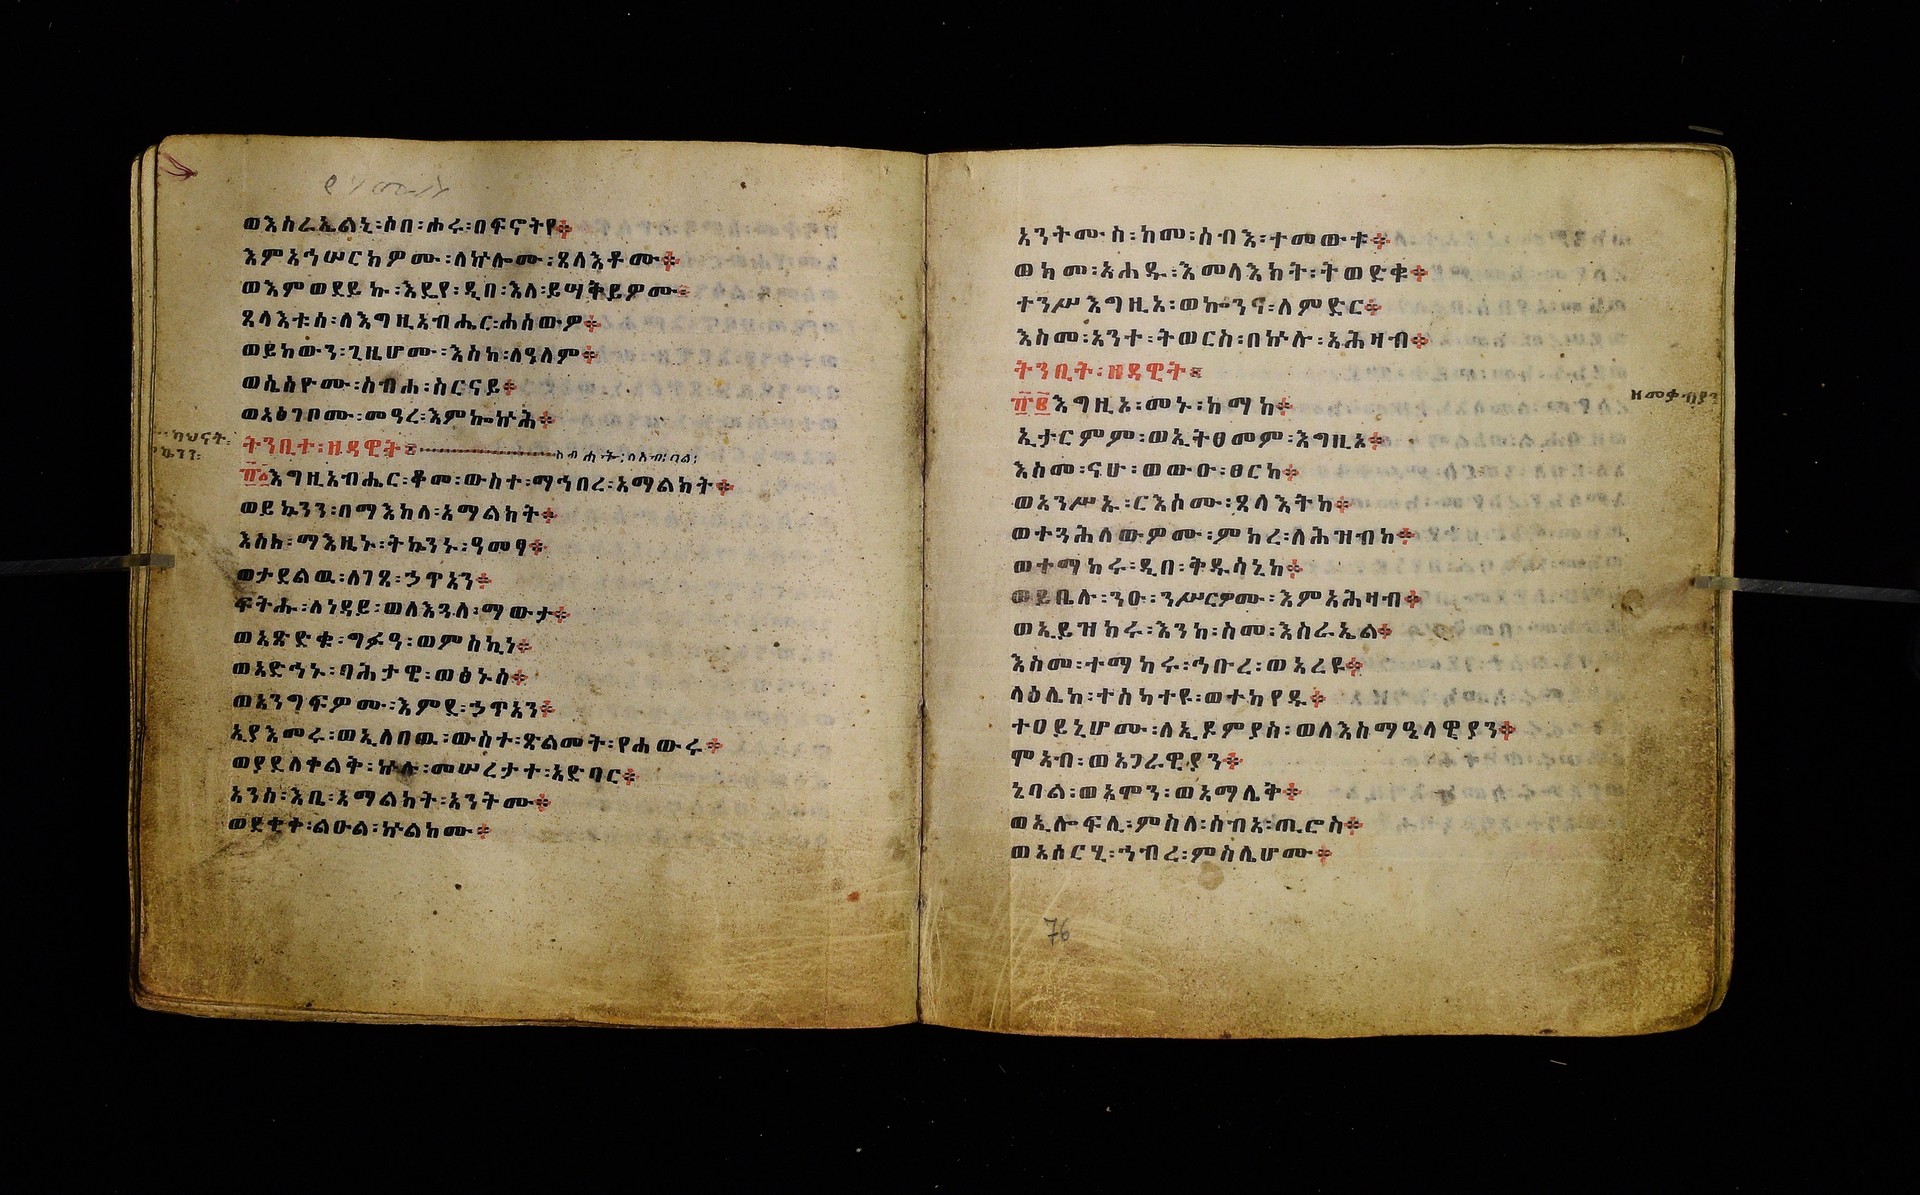 ወእስራኤልኒ፡ሶበ፡ሖሩ፡በፍኖትየ።
እምአኅሠርክዎሙ፡ለኵሎሙ፡ጸላእቶሙ።
ወእምወደይኩ፡እዴየ፡ዲበ፡እለ፡ይሣቅይዎሙ።
ጸላእቱሰ፡ለእግዚአብሔር፡ሐሰውዎ።
ወይከውን፡ጊዜሆሙ፡እስከ፡ለዓለም።
ወሴሰዮሙ፡ስብሐ፡ስርናይ።
ወአፅገቦሙ፡መዓረ፡እምኰኵሕ።
ትንቢተ፡ዘዳዊት።
ስብሐት፡ለአብ፡ባል፡
፹፩እግዚአብሔር፡ቆመ፡ውስተ፡ማኅበረ፡አማልክት።
ወይኴንን፡በማእከለ፡አማልክት።
እስከ፡ማእዜኑ፡ትኴንኑ፡ዓመፃ።
ወታደልዉ፡ለገጸ፡ኃጥአን።
ፍትሑ፡ለነዳይ፡ወለእጓለ፡ማውታ።
ወአጽድቁ፡ግፉዓ፡ወምስኪነ።
ወአድኅኑ፡ባሕታዊ፡ወፅኑስ።
ወአንግፍዎሙ፡እምደ፡ኃጥአን።
ኢያእመሩ፡ወኢለበዉ፡ውስተ፡ጽልመት፡የሐውሩ።
ወያደለቀልቅ፡ኵሉ፡መሠረታተ፡አድባር።
አንሰ፡እቤ፡አማልክት፡አንትሙ።
ወደቂቀ፡ልዑል፡ኵልክሙ።
አንትሙስ፡ከመ፡ሰብእ፡ተመውቱ።
ወክመ፡አሐዱ፡እመላእክት፡ትወድቁ።
ተንሥእግዚአ፡ወኰንና፡ለምድር።
እስመ፡አንተ፡ትወርስ፡በኵሉ፡አሕዛብ።
ትንቢት፡ዘዳዊት።
ዘመቃብያን
፹፪እግዚአ፡መኑ፡ከማከ።
ኢታርምም፡ወኢትፀመም፡እግዚአ።
እስመ፡ናሁ፡ወውዑ፡ፀርከ።
ወአንሥኡ፡ርእሶሙ፡ጸላእትከ።
ወተጓሕለውዎሙ፡ምክረ፡ለሕዝብከ።
ወተማከሩ፡ዲበ፡ቅዱሳኒከ።
ወይቤሉ፡ንዑ፡ንሥርዎሙ፡እምአሕዛብ።
ወኢይዝከሩ፡እንከ፡ስመ፡እስራኤል።
እስመ፡ተማከሩ፡ኅቡረ፡ወአረዩ።
ላዕሌከ፡ተስካተዩ፡ወተካየዱ።
ተዐይኒሆሙ፡ለኢዶምያስ፡ወለእስማዒላዊያን።
ሞአብ፡ወአገራዊያን።
ኔባል፡ወአሞን፡ወአማሌቅ።
ወኢሎፍሊ፡ምስለ፡ሰብአ፡ጢሮስ።
ወአሰርሂ፡ኅብረ፡ምስሌሆሙ።
76